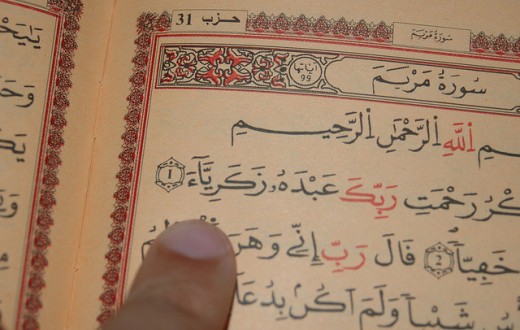 حزب 31
سُورَةُ مَرْيَمَ
سُورَةُ مَرْيَمَ
ءَايَاتُهَا 99
ـمِ اِ۬للَّهِ اِ۬لرَّحْمَٰنِ اِ۬لرَّحِيمِ
ـكْرُ رَحْمَتِ رَبِّكَ عَبْدَهُۥ زَكَرِيَّآءَ 1
خَفِيّاٗ 2 قَالَ رَبِّ إِنِّے وَهَنَ
شَيْباٗ وَلَمَ اَكُنۢ بِدُعَا
يَٰيَحْـ